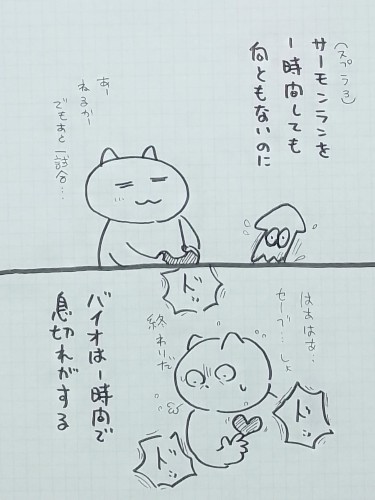 (スプラ3)
サーモンランを
一時間しても
何ともないのに
あー
ねるかー
でもあと一試合…
はぁはぁ…
セーブ…しよ
ドッ
終わりだ
ドッ
ドッ
バイオは一時間で
息切れがする